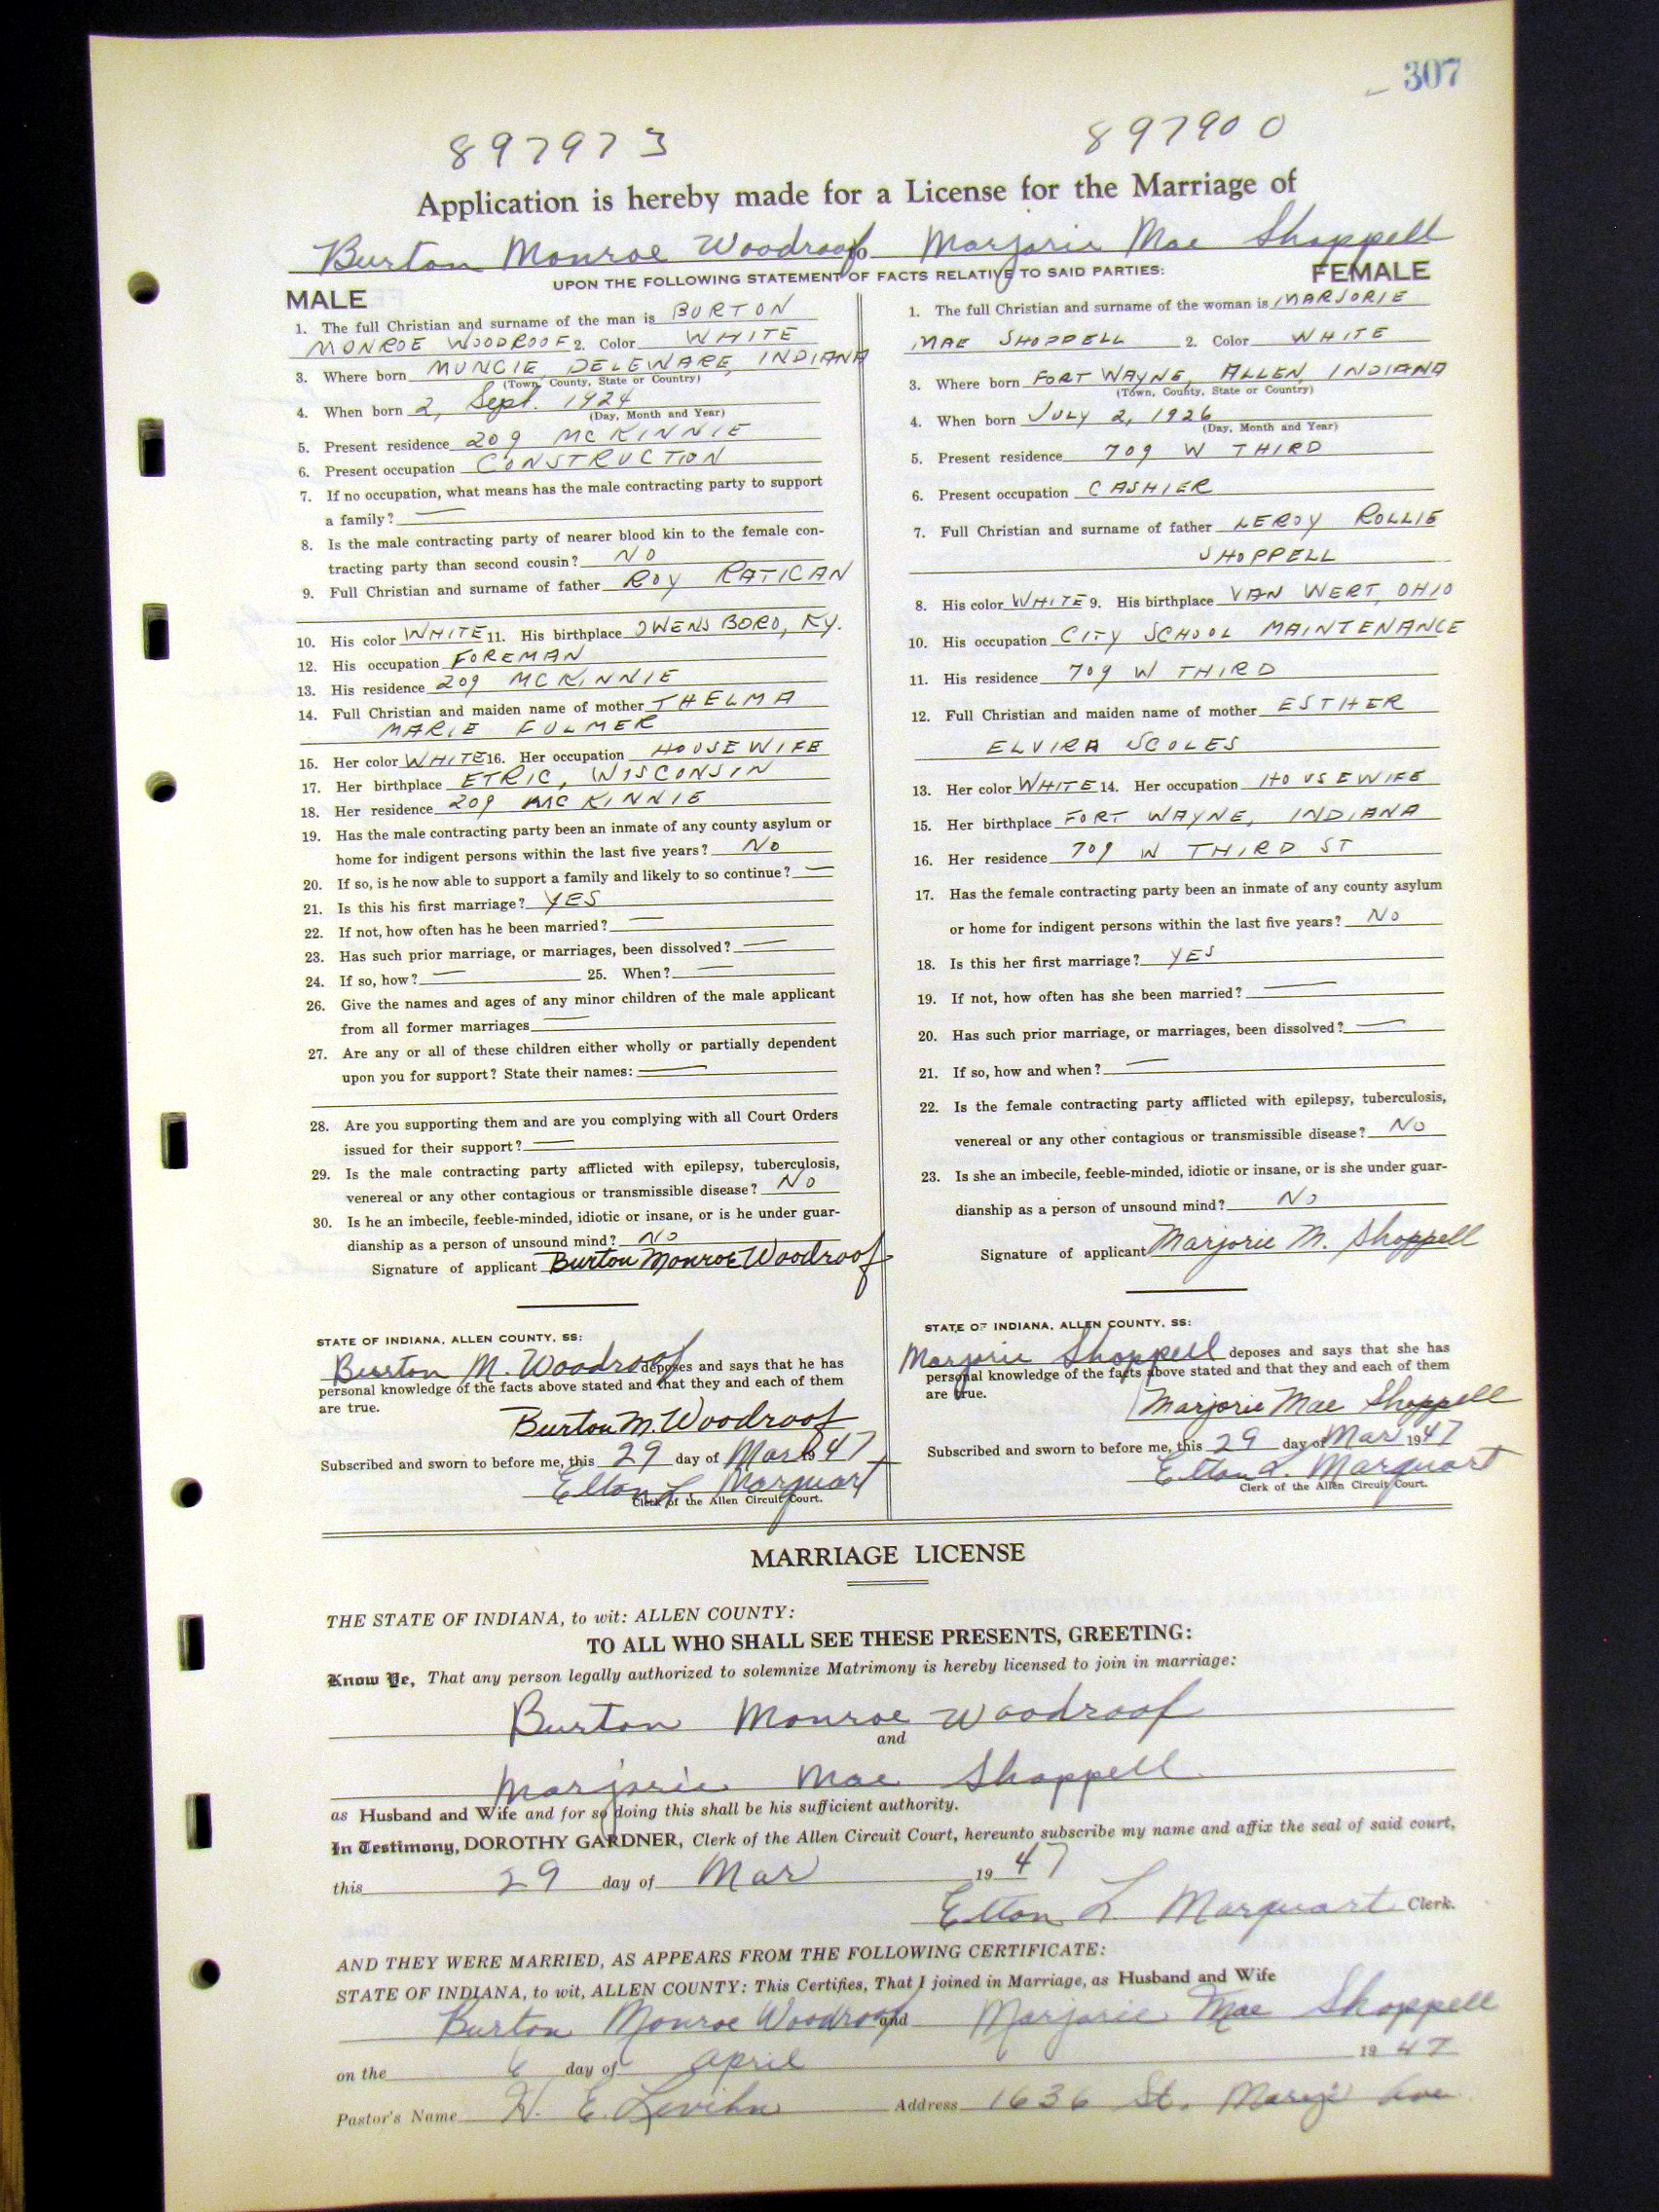 307
897973 897900
Application is hereby made for a License for the Marriage of
Burton Monroe Woodroof to Marjorie Mae Shoppell
UPON THE FOLLOWING STATEMENT OF FACTS RELATIVE TO SAID PARTIES:
MALE
1. The full Christian and surname of the man is BURTON
MONROE WOODROOF 2. Color WHITE
3. Where born MUNCIE, DELEWARE, INDIANA
(Town, County, State or Country)
4. When born 2, Sept. 1924
(Day, Month and Year)
5. Present residence 209 MCKINNIE
6. Present occupation CONSTRUCTION
7. If no occupation, what means has the male contracting party to support
a family? —
8. Is the male contracting party of nearer blood kin to the female con-
tracting party than second cousin? NO
9. Full Christian and surname of father ROY RATICAN
10. His color WHITE 11. His birthplace OWENSBORO, KY.
12. His occupation FOREMAN
13. His residence 209 MCKINNIE
14. Full Christian and maiden name of mother THELMA
MARIE FULMER
15. Her color WHITE 16. Her occupation HOUSEWIFE
17. Her birthplace ETRIC, WISCONSIN
18. Her residence 209 MCKINNIE
19. Has the male contracting party been an inmate of any county asylum or
home for indigent persons within the last five years? NO
20. If so, is he now able to support a family and likely to so continue? —
21. Is this his first marriage? YES
22. If not, how often has he been married? —
23. Has such prior marriage, or marriages, been dissolved? —
24. If so, how? — 25. When? —
26. Give the names and ages of any minor children of the male applicant
from all former marriages —
27. Are any or all of these children either wholly or partially dependent
upon you for support? State their names: —
28. Are you supporting them and are you complying with all Court Orders
issued for their support? —
29. Is the male contracting party afflicted with epilepsy, tuberculosis,
venereal or any other contagious or transmissible disease? NO
30. Is he an imbecile, feeble-minded, idiotic or insane, or is he under guar-
dianship as a person of unsound mind? NO
Signature of applicant Burton Monroe Woodroof
STATE OF INDIANA, ALLEN COUNTY, SS:
Burton M. Woodroof deposes and says that he has
personal knowledge of the facts above stated and that they and each of them
are true.
Burton M. Woodroof
Subscribed and sworn to before me, this 29 day of Mar 1947
Elton L. Marquart
Clerk of the Allen Circuit Court.
FEMALE
1. The full Christian and surname of the woman is MARJORIE
MAE SHOPPELL 2. Color WHITE
3. Where born FORT WAYNE, ALLEN, INDIANA
(Town, County, State or Country)
4. When born JULY 2, 1926
(Day, Month and Year)
5. Present residence 709 W THIRD
6. Present occupation CASHIER
7. Full Christian and surname of father LEROY ROLLIE
SHOPPELL
8. His color WHITE 9. His birthplace VAN WERT, OHIO
10. His occupation CITY SCHOOL MAINTENANCE
11. His residence 709 W THIRD
12. Full Christian and maiden name of mother ESTHER
ELVIRA SCOLES
13. Her color WHITE 14. Her occupation HOUSEWIFE
15. Her birthplace FORT WAYNE, INDIANA
16. Her residence 709 W THIRD ST
17. Has the female contracting party been an inmate of any county asylum
or home for indigent persons within the last five years? NO
18. Is this her first marriage? YES
19. If not, how often has she been married? —
20. Has such prior marriage, or marriages, been dissolved? —
21. If so, how and when? —
22. Is the female contracting party afflicted with epilepsy, tuberculosis,
venereal or any other contagious or transmissible disease? NO
23. Is she an imbecile, feeble-minded, idiotic or insane, or is she under guar-
dianship as a person of unsound mind? NO
Signature of applicant Marjorie M. Shoppell
STATE OF INDIANA, ALLEN COUNTY, SS:
Marjorie Shoppell deposes and says that she has
personal knowledge of the facts above stated and that they and each of them
are true.
Marjorie Mae Shoppell
Subscribed and sworn to before me, this 29 day of Mar 1947
Elton L. Marquart
Clerk of the Allen Circuit Court.
MARRIAGE LICENSE
THE STATE OF INDIANA, to wit: ALLEN COUNTY:
TO ALL WHO SHALL SEE THESE PRESENTS, GREETING:
Know Ye, That any person legally authorized to solemnize Matrimony is hereby licensed to join in marriage:
Burton Monroe Woodroof
and
Marjorie Mae Shoppell
as Husband and Wife and for so doing this shall be his sufficient authority.
In Testimony, DOROTHY GARDNER, Clerk of the Allen Circuit Court, hereunto subscribe my name and affix the seal of said court,
this 29 day of Mar 1947
Elton L Marquart Clerk.
AND THEY WERE MARRIED, AS APPEARS FROM THE FOLLOWING CERTIFICATE:
STATE OF INDIANA, to wit, ALLEN COUNTY: This Certifies, That I joined in Marriage, as Husband and Wife
Burton Monroe Woodroof and Marjorie Mae Shoppell
on the 6 day of April 1947
Pastor's Name H. E. Levihn Address 1636 St. Mary's Ave